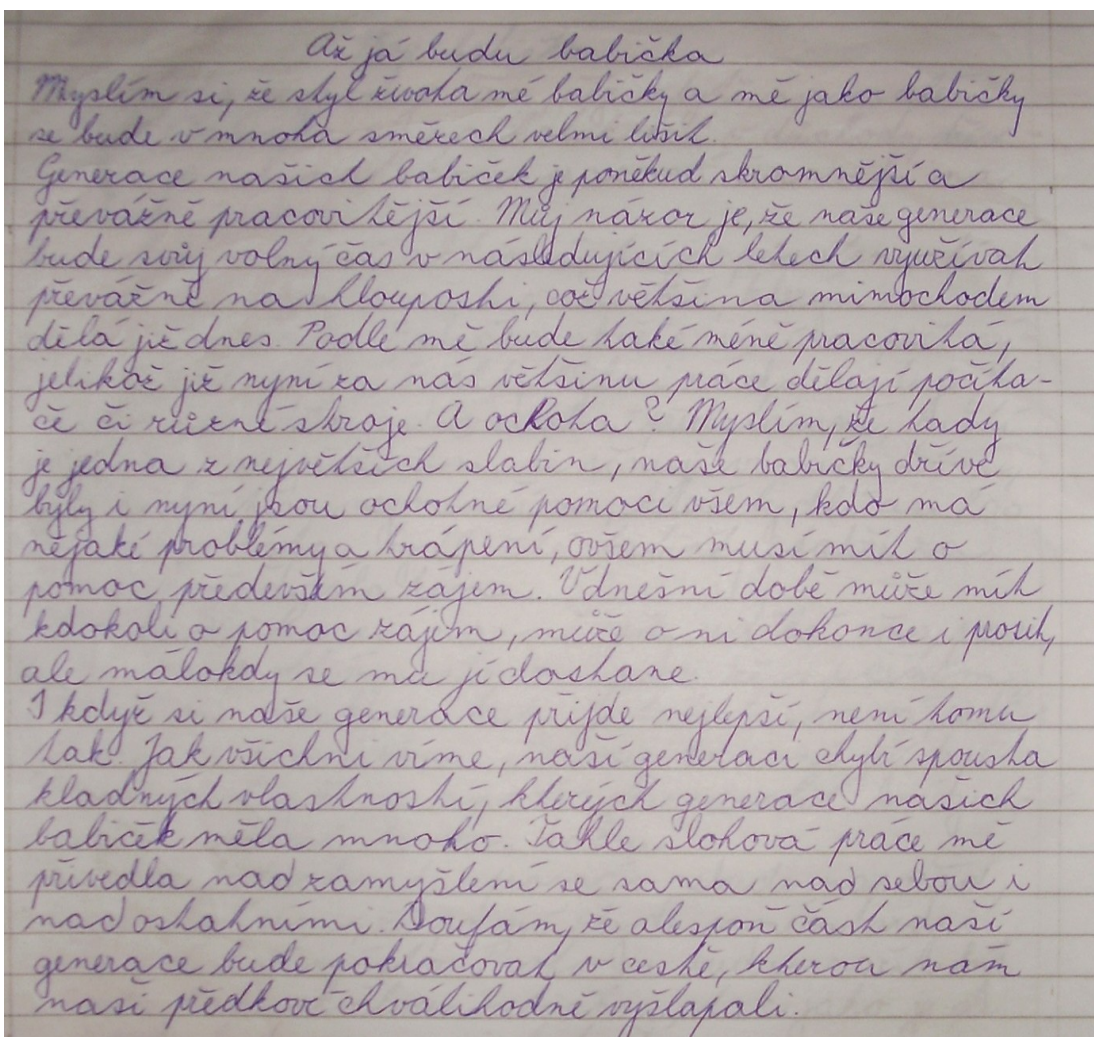 Až já budu babička
Myslím si, že styl života mé babičky a mě jako babičky
se bude v mnoha směrech velmi lišit.
Generace našich babiček je poněkud skromnější a
převážně pracovitější. Můj názor je, že naše generace
bude svůj volný čas v následujících letech využívat
převážně na hlouposti, což většina mimochodem
dělá již dnes. Podle mě bude také méně pracovitá,
jelikož již nyní za nás většinu práce dělají počíta-
če či různé stroje. A ochota? Myslím, že tady
je jedna z největších slabin, naše babičky dříve
byly i nyní jsou ochotné pomoci všem, kdo má
nějaké problémy a trápení, ovšem musí mít o
pomoc především zájem. V dnešní době může mít
kdokoli o pomoc zájem, může o ni dokonce i prosit,
ale málokdy se mu jí dostane.
I když si naše generace přijde nejlepší, není tomu
tak. Jak všichni víme, naší generaci chybí spousta
kladných vlastností, kterých generace našich
babiček měla mnoho. Tahle slohová práce mě
přivedla nad zamyšlení se sama nad sebou i
nad ostatními. Doufám, že alespoň část naší
generace bude pokračovat v cestě, kterou nám
naši předkové chválihodně vyšlapali.